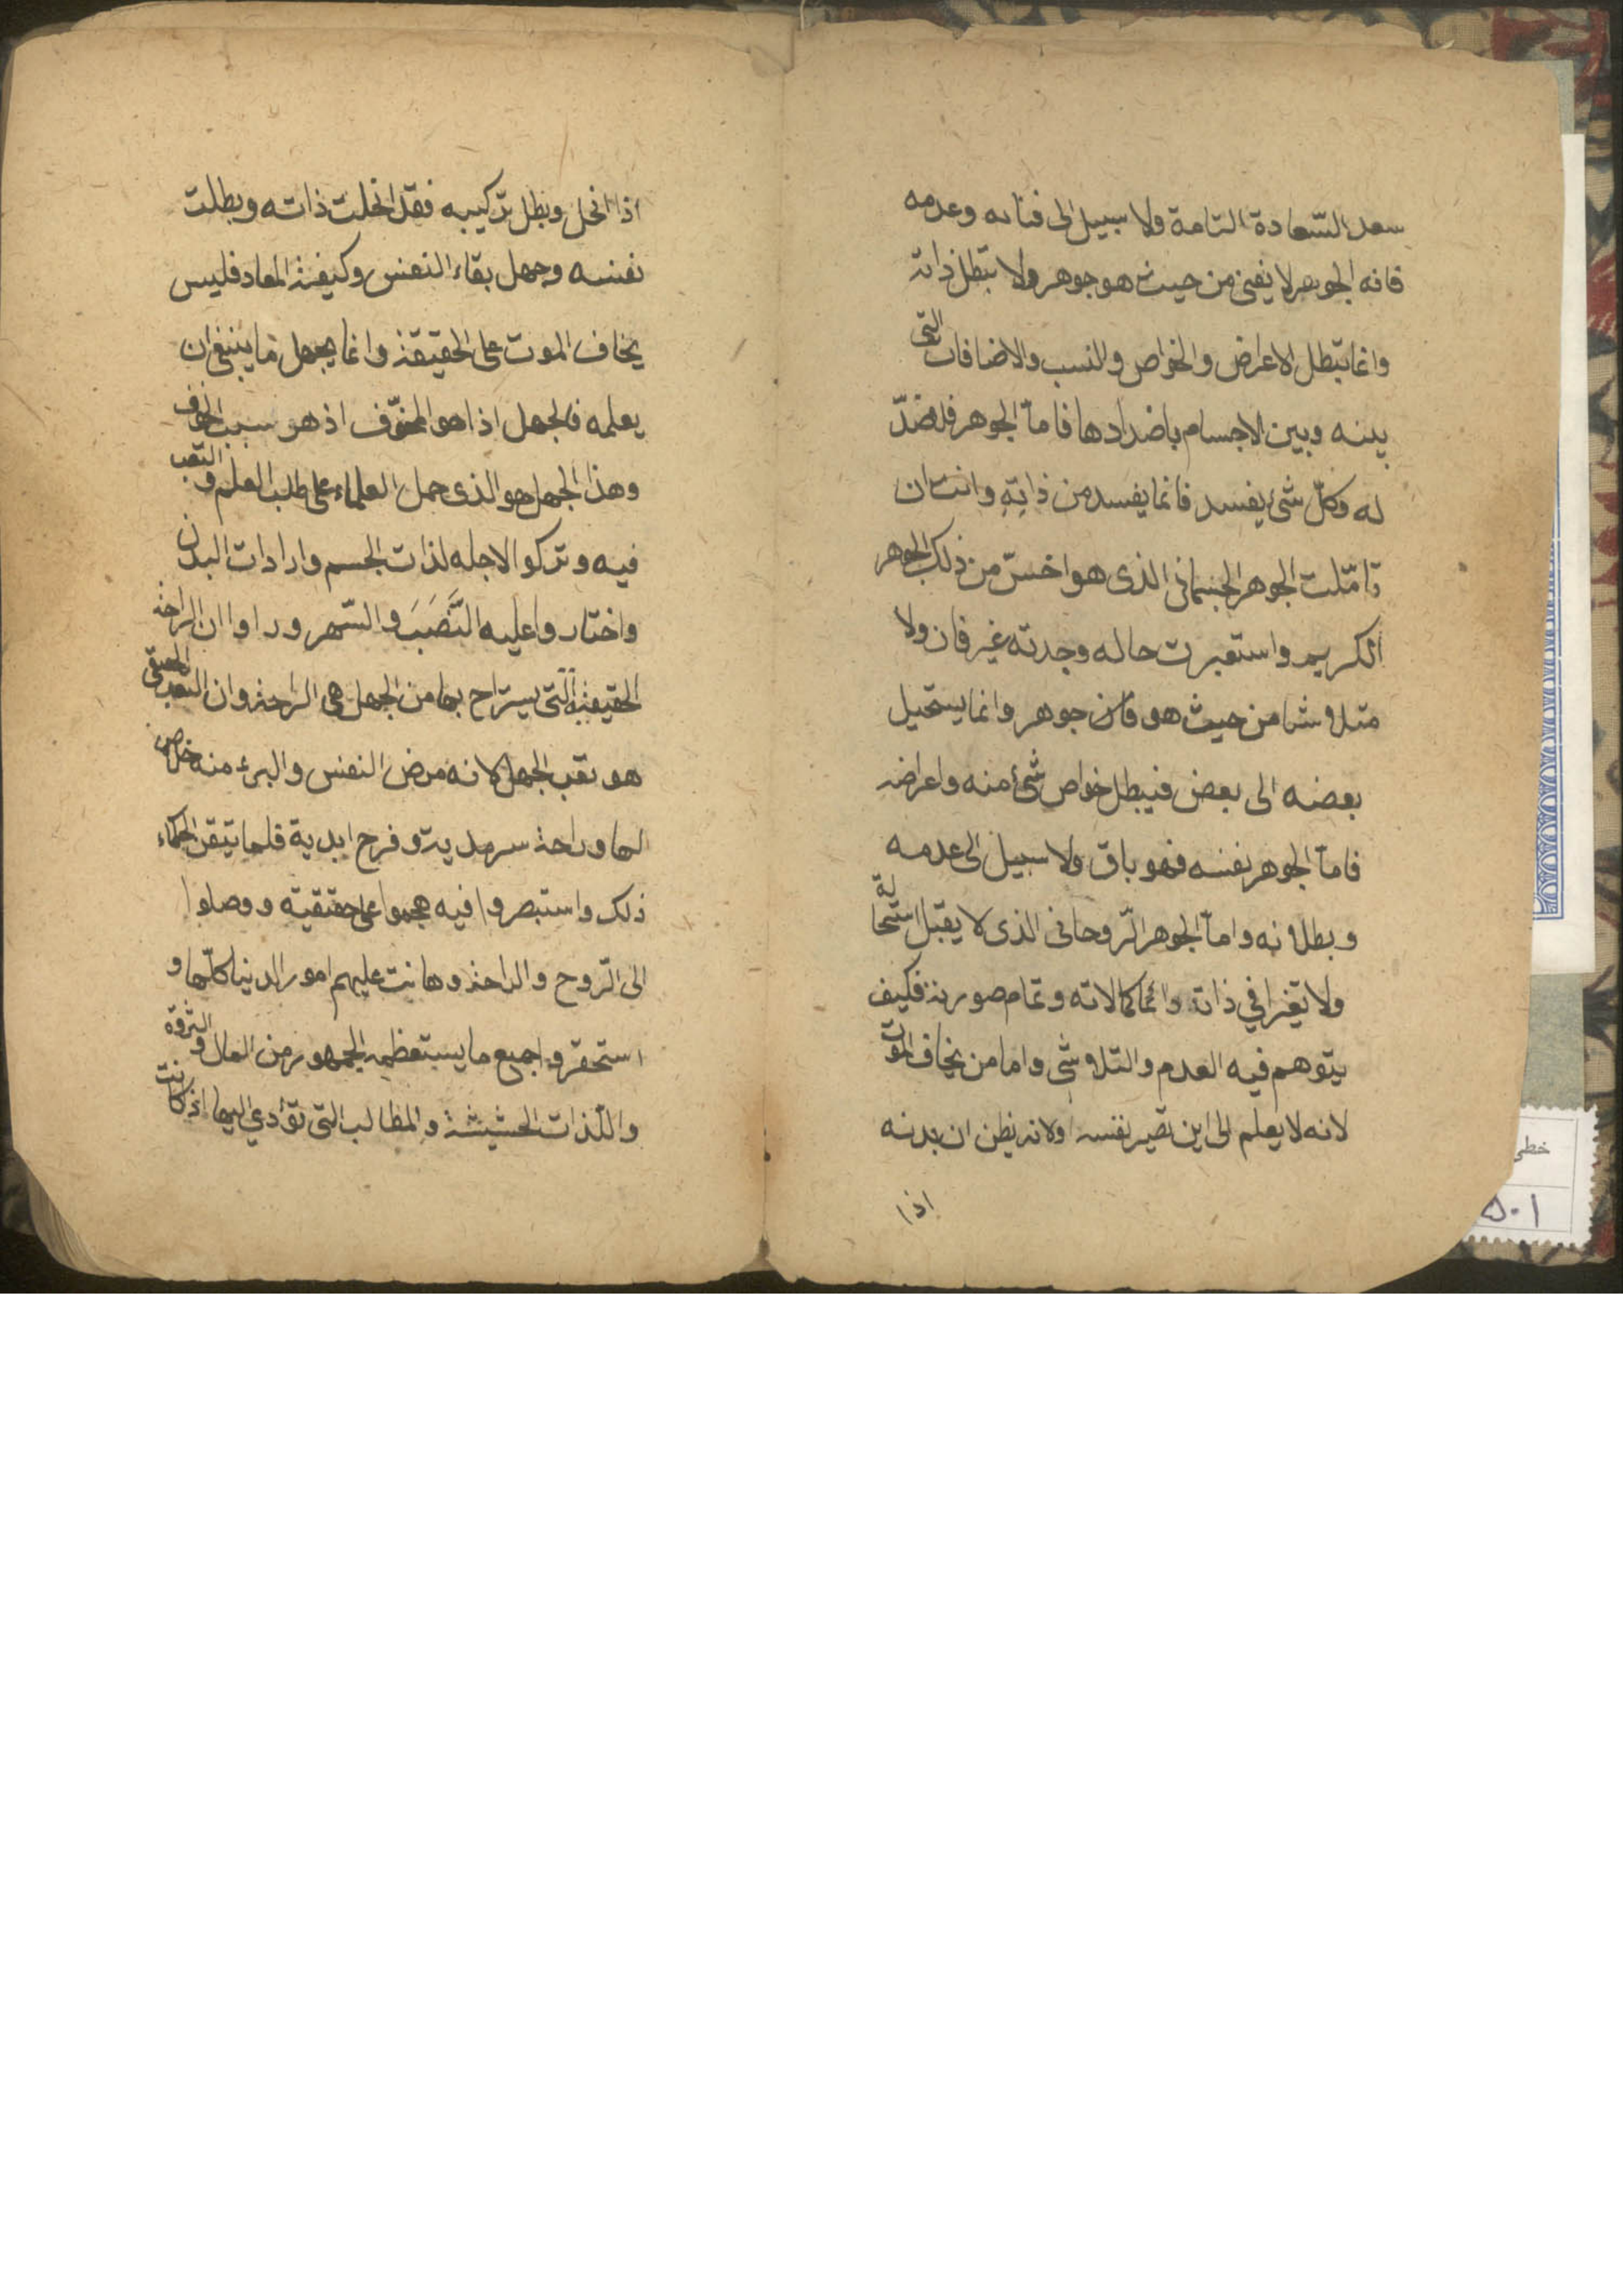 سعد السّعادة التامة ولا سبيل الى فنائه وعدمه
فانه الجوهر لا يفنى من حيث هو جوهر ولا تبطل ذاته
وانما تبطل الاعراض والخواص والنسب والاضافات التى
بينه وبين الاجسام باضدادها فامّا الجوهر فلا ضدّ
له وكلّ شئ يفسد فانما يفسد من ذاتِهِ وانت ان
تامّلت الجوهر الجسمانى الذى هو اخسّ من ذلك الجوهر
الكريم واستقبرت حاله وجدته غير فان ولا
متلاشا من حيث هو جوهر وانما يستحيل
بعضه الى بعض فيبطل خواص شئ منه واعراضه
فامّا الجوهر نفسه فهو باق ولا سبيل الى عدمه
وبطلانه وامّا الجوهر الرّوحانى الذى لا يقبل استحالة
ولا تغيرا في ذاته وانما كمالاته وتمام صورته فكيف
يتوهم فيه العدم والتلاشى واما من يخاف الموت
لانه لا يعلم الى اين تصير نفسه اولانه يظن ان بدنه
اذا
اذا انحل وبطل تركيبه فقد انحلت ذاته وبطلت
نفسه وجهل بقاء النفس وكيفية المعاد فليس
يخاف الموت على الحقيقة وانما يجهل ما ينبغى ان
يعلمه فالجهل اذا هو المخوّف اذ هو سبب الخوف
وهذا الجهل هو الذى حمل العلماء على طلب العلم والتعب
فيه وتركوا لاجله لذات الجسم وارادات البدن
واختاروا عليه النَّصَبَ والسّهر وراوا ان الراحة
الحقيقية الّتى يستراح بها من الجهل هى الراحة وان التعب الحقيقى
هو تعب الجهل لانه مرض النفس والبرء منه خلاص
لها وراحة سرمدية وفرح ابدية فلما تيقن الحكماء
ذلك واستبصروا فيه هجموا على حقيقته ووصلوا
الى الرّوح والراحة وهانت عليهم امور الدنيا كلّها و
استحقروا جميع ما يستعظمه الجمهور من المال والثروة
واللّذات الحسّيسة والمطالب التى تؤدي اليها اذ كانت
خطى
٥٠١